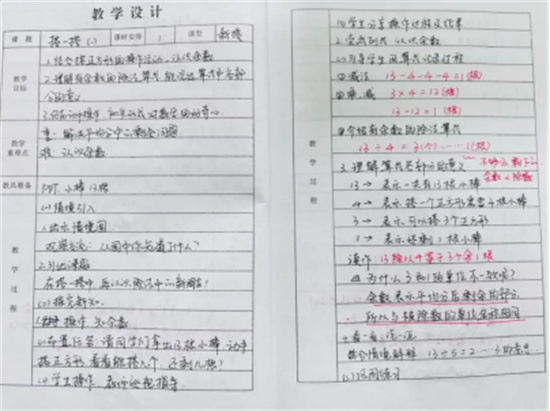 教学设计
课题 搭一搭(一) 课时安排 1 课型 新授
教学目标
1.结合搭正方形的操作活动,认识余数
2.理解有余数的除法算式,能说出算式中各部
分的意义
教学重难点
重:解决平均分中的剩余问题
难:认识余数
教具准备
PPT、小棒13根
教学过程
(一)情境引入
1.出示情境图
观察交流:从图中你知道了什么?
2.引出课题
在搭一搭中,再认识除法中的新朋友!
(二)探究新知
操作,知余数
(1)布置任务:请同学们拿出13根小棒,动手
搭正方形,看看能搭几个,还剩几根?
(2)学生操作,教师巡视指导
教学过程
(3)学生分享操作过程及结果
2.竞式列式,认识余数
①减法 13-4-4-4=1(根)
②乘、减 3×4=12(根)
13-12=1(根)
③介绍有余数的除法算式
13÷4=3(个)……1(根)
3.理解算式各部分的意义 不够分剩下的
余数<除数
13→ 表示一共有13根小棒
4→ 表示搭一个正方形需要4根小棒
3→ 表示可以搭3个正方形
1→ 表示还剩1根小棒
读作:13除以4等于3个余1根
4.为什么3和1的单位不一致呢?
余数表示平均分后剩余的部分
所以与被除数的单位名称相同
结合情境解释 13÷5=2……3的意思